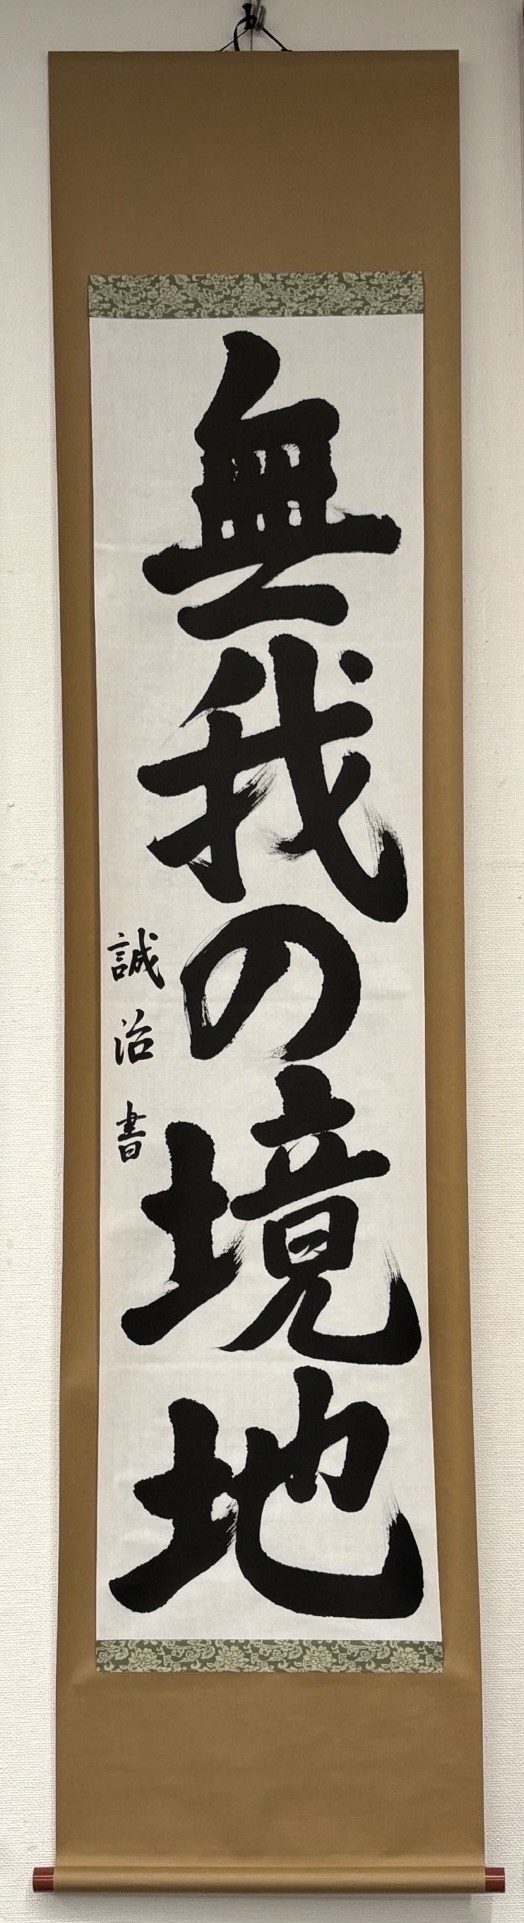 無我の境地
誠治書